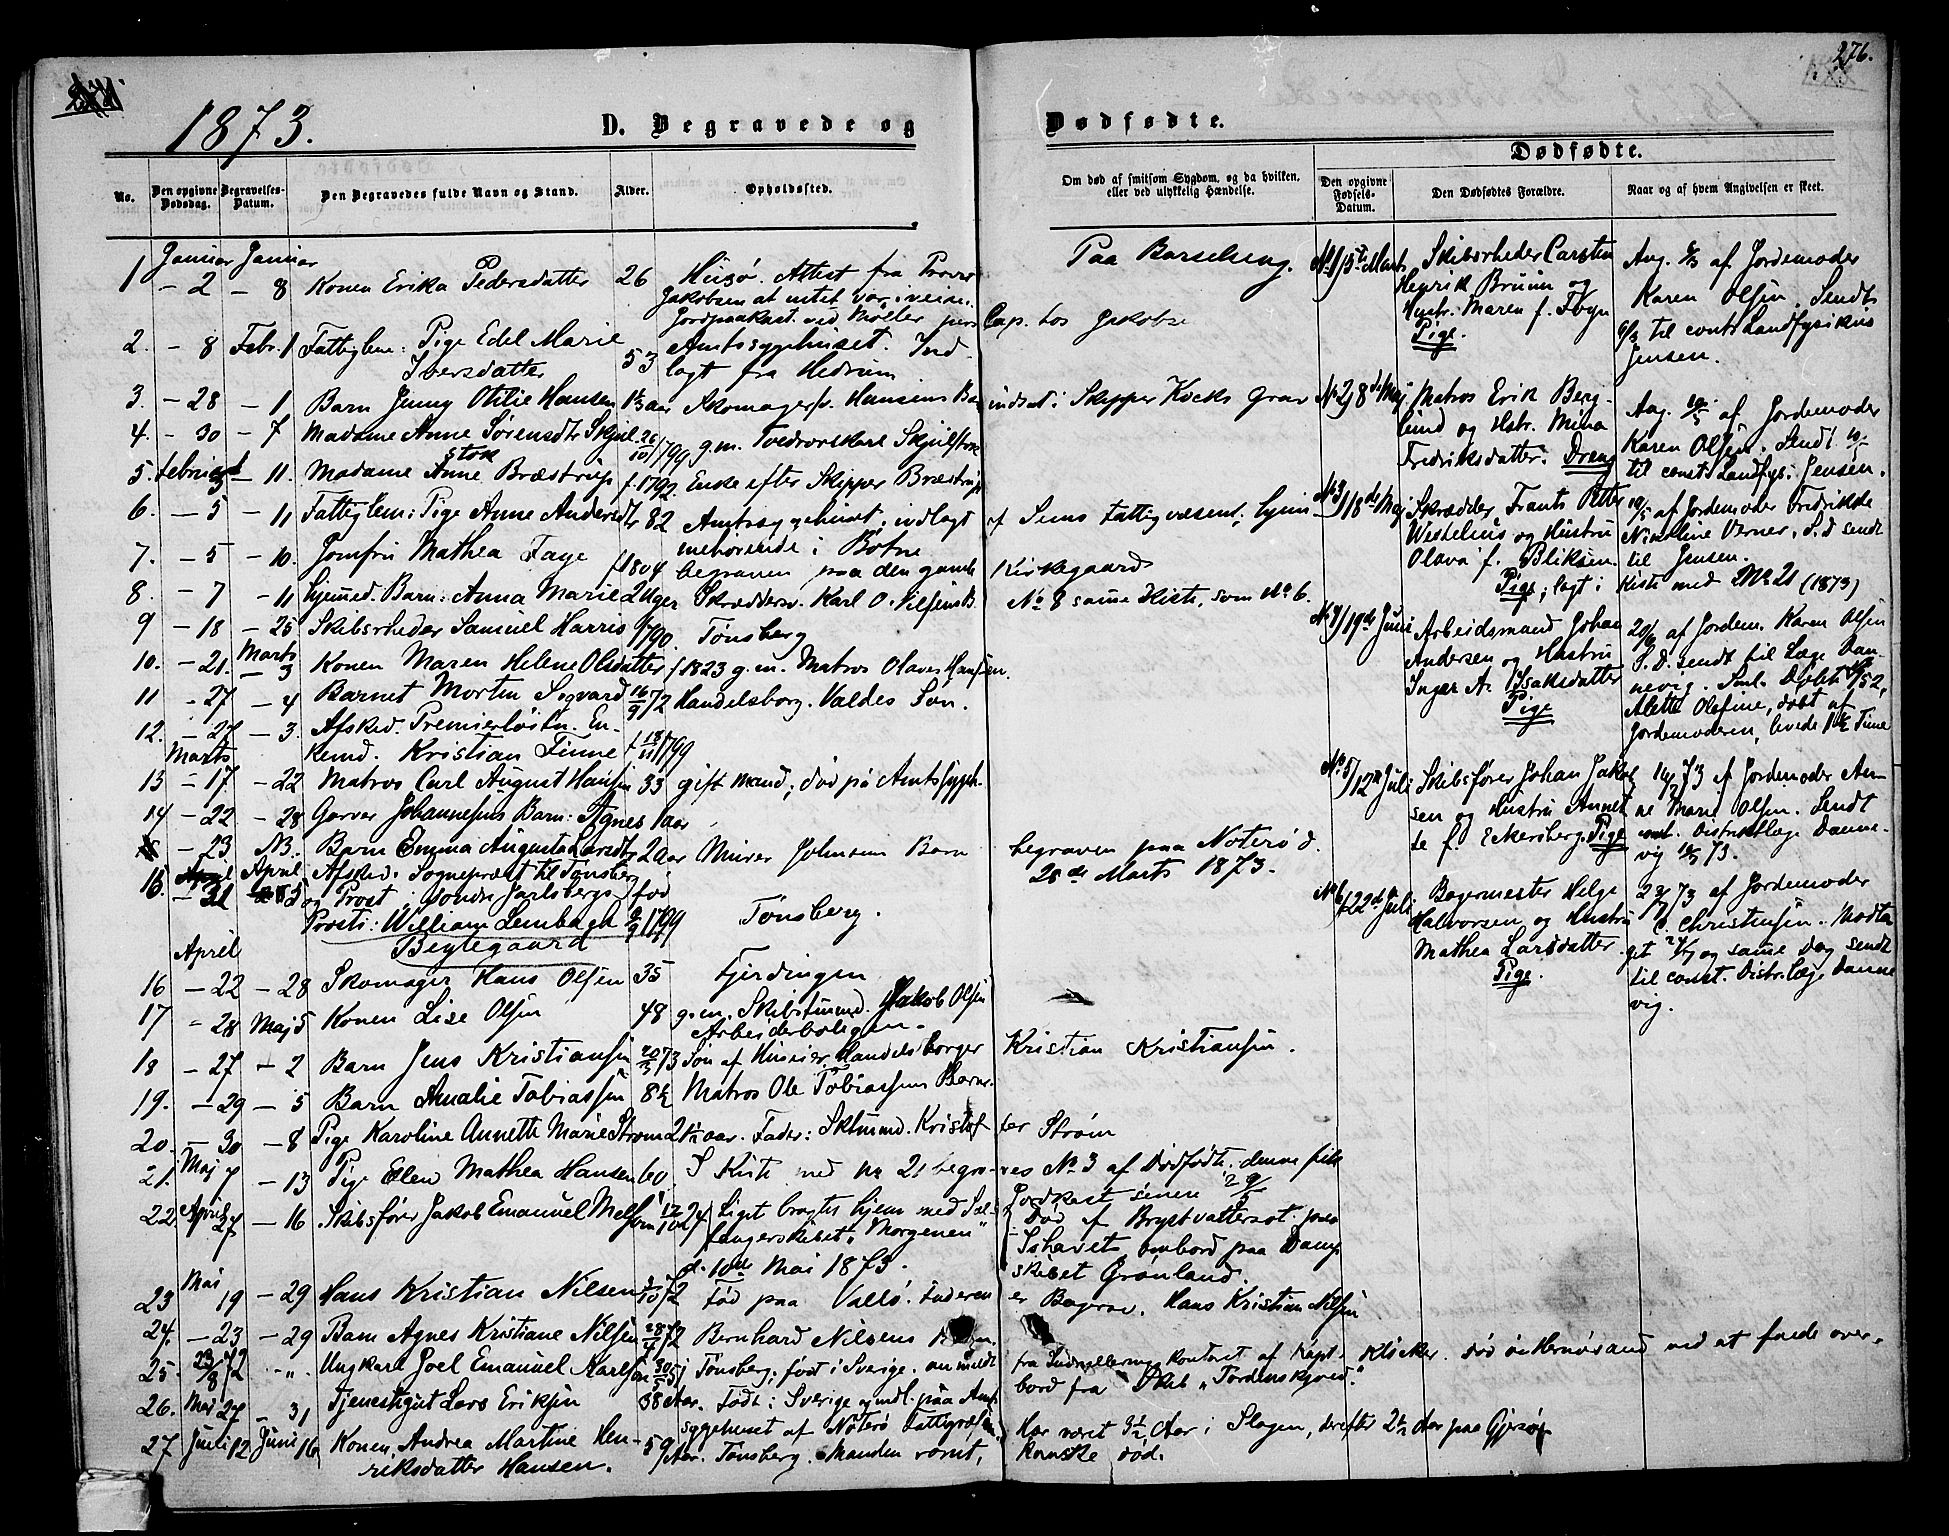 276.
1873.
D. Begravede og
Dødfødte.
Dødfødte.
No.
Den opgivne Dødsdag.
Begravelses-Datum.
Den Begravedes fulde Navn og Stand.
Alder.
Opholdssted.
Om død af smitsom Sygdom, og da hvilken,
eller ved ulykkelig Hændelse.
Den opgivne Fødsels-Datum.
Den Dødfødtes Forældre.
Naar og af hvem Angivelsen er skeet.
Januar Januar
1 - 2 - 8 Konen Erika Pedersdatter 26 Husø. Attest fra Provst Paa Barselseng.
Jakobsen at intet var i veien.
Jordpaakast. ved Møller
2. - 8 Febr. 1 Fattiglem: Pige Edel Marie 53 Amtssygehuset. Ind-
Iversdatter lagt fra Hedrum
3. - 28 - 1 Barn Jenny Otilie Hansen Skomagersv. Hansens Barn indsat i Skipper Kocks Grav
4. - 30 - 7 Madame Anne Sørensdtr Skjel- 26/10 1799 g.m.
stok
5. Februar 3 - 11. Madame Anne Bræstrup f. 1792. Enke efter Skipper Bræstrup
6. - 5 - 11 Fattiglem: Pige Anne Andersdtr 82 Amtssygehuset, indlagt af Sems Fattigvæsen; hjem-
mehørende i Botne
7. - 5 - 10. Jomfru Mathea Faye f 1804 begraven paa den gamle Kirkegaard
8. - 7 - 11 hjemmed. Barn: Anna Marie 2 Uger Skræddersv. Karl O. Nilsens B. No 8 samme Kiste, som No 6.
9 - 18 - 25 Skibsrheder Samuel Harris 1790. Tønsberg
Marts
10. - 21. - 3 Konen Maren Helene Olsdatter f 1823 g.m. Matros Olaves Hansen.
11 - 27 - 4 Barnet Morten Sigvard 16/9 72 Handelsborg. Valdes Søn.
12. - 27 - 3. Afsked. Premierløitn. En-
kemd. Kristian Finne f 13/11 1799
Marts
13 - 17 - 22 Matros Carl August Hansen 33 gift mand; død på Amtssygeh.
14 - 22 - 28 Garver Johannesens Barn: Agnes 1 aar
- 23 NB. Barn Emma Augusta Larsdtr 2 aar Murer Johnsens Barn begraven paa Nøterø d.
28de Marts 1873.
April
15. - 31 5 Afsked. Sogneprest til Tønsberg
og Prost i Søndre Jarlsbergs født
Prosti: William Lembach 1799 Tønsberg.
Beylegaard
April
16 - 22 - 28 Skomager Hans Olsen 35 Fjerdingen
17 - 28 Maj 5 Konen Lise Olsen 48 g.m. Skibstømmd. Jakob Olsen
Arbeiderboligen.
18 - 27 - 2 Barn Jens Kristiansen 20/3 73 Søn af Huseier, Handelsborger Kristian Kristiansen.
19. - 29 - 5 Barn Amalie Tobiassen 8½ Matros Ole Tobiassens Barn.
20. - 30 - 8 Pige Karoline Annette Marie Strøm 2½ aar. Fader: Sktmmd. Kristof- fer Strøm
21. Maj 7 - 13 Pige Elen Mathea Hansen 60 I Kiste med no 21 begra- ves No 3 af Dødfødte, denne fik
Jordkast senere 29/5
22 April 27 - 16 Skibsfører Jakob Emanuel Melsom 12/10 24 Liget bragtes hjem med Sæl- Død af Brystvattersot paa
fangerskibet "Morgenen" Ishavet, ombord paa Damp-
d. 10de Mai 1873. skibet Grønland.
Mai
23 19 - 29 Hans Kristian Nilsen 72 Født paa Vallø. Faderen er Bagersv. Hans Kristian Nilsen
24. - 23 - 29 Barn Agnes Kristiane Nilsen 28/4 72 Bernhard Nilsens Barn.
25. 23/8 72 " Ungkarl Joel Emanuel Karlson 30/5 51 Tønsberg; født i Sverige. anmeldt fra Indrulleringskontoret af Kapt. Kløcker. død ved Hernøsand ved at falde over-
bord fra Skib "Tordenskjold".
26. Maj 27 - 31 Tjenestegut Lars Eriksen 38 Aar. Født i Sverige, indl. paa Amts-
sygehuset af Nøterø Fattigvæsen.
27 Juni 12 Juni 16 Konen Andrea Martine Hen- 59 Aar. Tønsberg. Manden rømt, Har været 9½ Aar i Slagen, derefter 2½ Aar paa Gjersø
riksdatter Hansen. kanske død.
No 1/ 5te Marts Skibsrheder Carsten
Henrik Bruun og
Hustr. Maren f. Foyn
Pige.
Ang. 6/3 af Jordemoder
Karen Olsen. Sendt
6/3 til const. Landfysikus
Jensen.
No 2/ 8de Maj Matros Erik Berg-
lund og Hstr. Mina
Fredriksdatter. Dreng
Ang. 10/5 af Jordemoder
Karen Olsen. Sendt 10/5
til const. Landfys. Jensen.
No 3/ 18de Maj Skrædder Frants Petter
Westelius og Hustru
Olava f. Bliksen.
Pige; lagt i Kiste med No 21 (1873)
19/5 af Jordemoder Fredrikke
Nicoline Verner. S.d sendt
til Jensen.
No 4/ 19de Juni Arbeidsmand Johan
Andersen og Hustru
Inger A. Isaksdatter
Pige
20/6 af Jordem. Karen Olsen
S.D. sendt til Læge Dan-
nevig.
Alette Olefine, døbt af
Jordemoderen, levede 1½ Time
No 5/ 12te Juli Skibsfører Johan Jakob-
sen og Hustru Annet-
te f. Eckersberg. Pige
14/7 73 af Jordemoder An-
ne Marie Olsen. Sendt
const. Distriktlæge Danne-
vig 73.
No 6/ 22de Juli Bagermester Helge
Halvorsen og Hustru
Mathea Larsdatter
Pige.
22/7 73 af Jordemoder
C. Christensen. Modta-
get 24/7 og samme Dag sendt
til const. Distr.læge Danne-
vig.